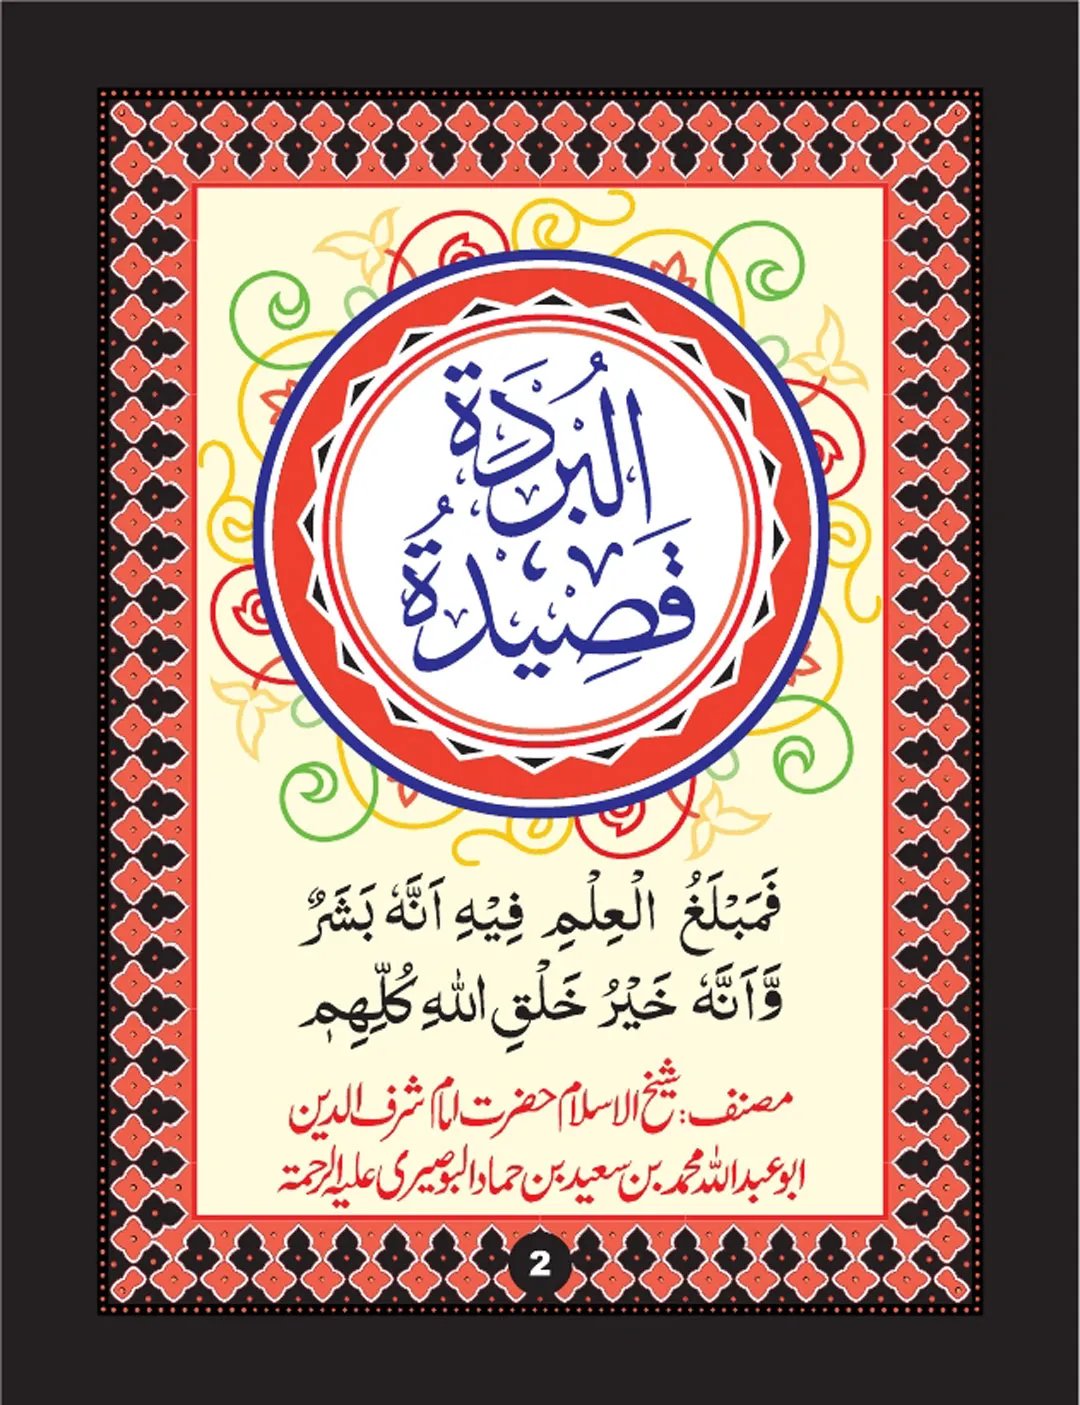 البُرْدَة
قَصِيْدَةُ
فَمَبْلَغُ الْعِلْمِ فِيْهِ اَنَّهٗ بَشَرٌ
وَّاَنَّهٗ خَيْرُ خَلْقِ اللهِ كُلِّهِمٖ
مصنف: شیخ الاسلام حضرت امام شرف الدین
ابو عبداللہ محمد بن سعید بن حماد البوصیری علیہ الرحمۃ
2